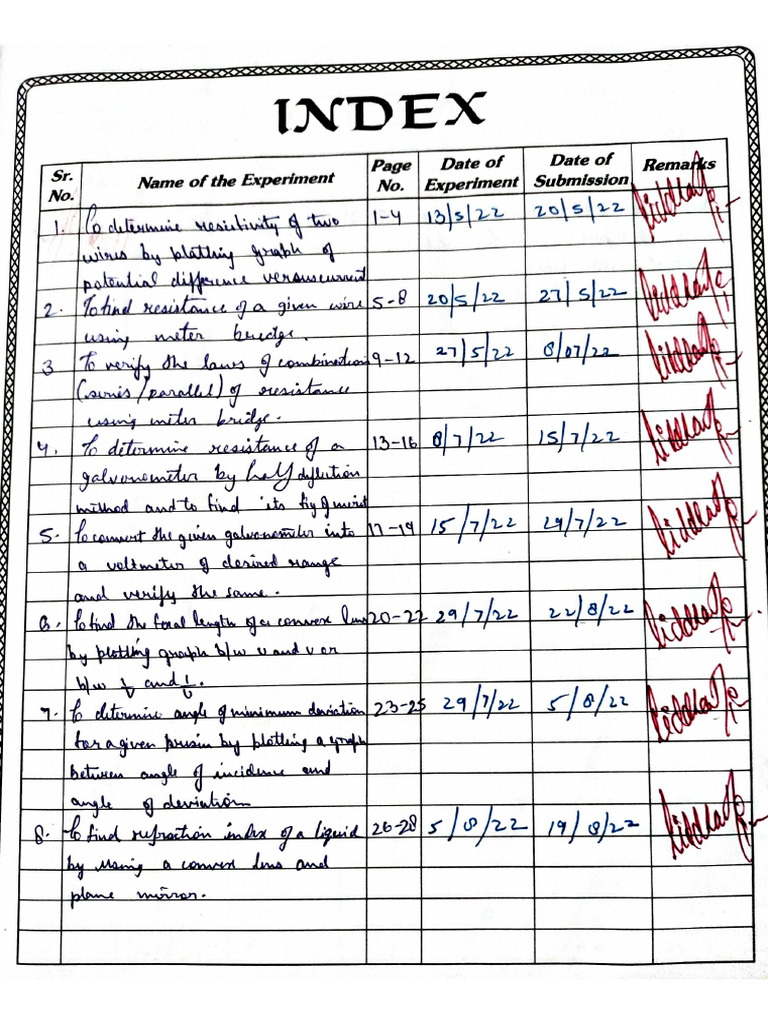 INDEX
Sr. No. Name of the Experiment Page No. Date of Experiment Date of Submission Remarks
1. To determine resistivity of two 1-4 13/5/22 20/5/22
wires by plotting graph of
potential difference versus current
2. To find resistance of a given wire 5-8 20/5/22 27/5/22
using meter bridge.
3 To verify the laws of combination 9-12 27/5/22 8/07/22
(series/parallel) of resistance
using miter bridge.
4. To determine resistance of a 13-16 8/7/22 15/7/22
galvanometer by half deflection
method and to find its fig of merit
5. To convert the given galvanometer into 17-19 15/7/22 29/7/22
a voltmeter of desired range
and verify the same.
6. To find the focal length of a convex lens 20-22 29/7/22 22/8/22
by plotting graph b/w u and v or
b/w 1/u and 1/v.
7. To determine angle of minimum deviation 23-25 29/7/22 5/8/22
for a given prism by plotting a graph
between angle of incidence and
angle of deviation
8. To find refraction index of a liquid 26-28 5/8/22 19/8/22
by using a convex lens and
plane mirror.